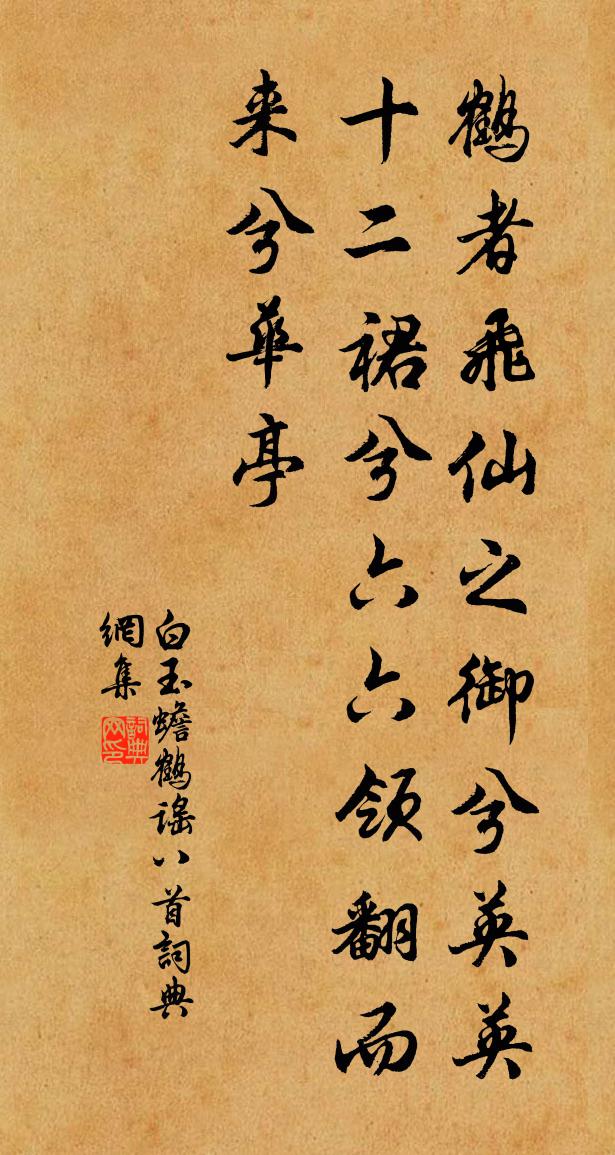 鹤者飛仙之御兮英英
十二裙兮六六領翻而
来兮華亭
白玉蟾鹤謠八首詞典
網集
詞典
网印